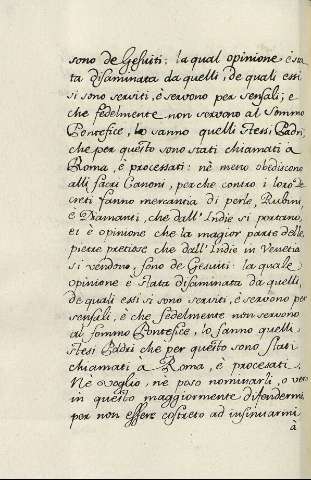 sono de Gesuiti; la qual opinione è sta
ta disaminata da quelli, de quali essi
si sono serviti, è servono per sensali; e
che fedelmente non servono al Sommo
Pontefice, lo sanno quelli stesi Padri,
che per questo sono stati chiamati à
Roma, è processati: nè meno obediscono
alli sacri Canoni, perche contro i loro de
creti fanno mercantia di perle, Rubini,
e Diamanti, che dall'Indie si portano,
et è opinione che la magior parte delle
pietre pretiose che dall'Indie in Venetia
si vendono, sono de Gesuiti: la quale
opinione è stata disaminata da quelli,
de quali essi si sono serviti, è servono per
sensali, è che fedelmente non servono
al sommo Pontefice, lo sanno quelli
stesi Padri che per questo sono stati
chiamati a Roma, è procesati.
Nè voglio, ne poso nominarli, o vero
in questo maggiormente difendermi
per non essere costreto ad insinuarmi
à